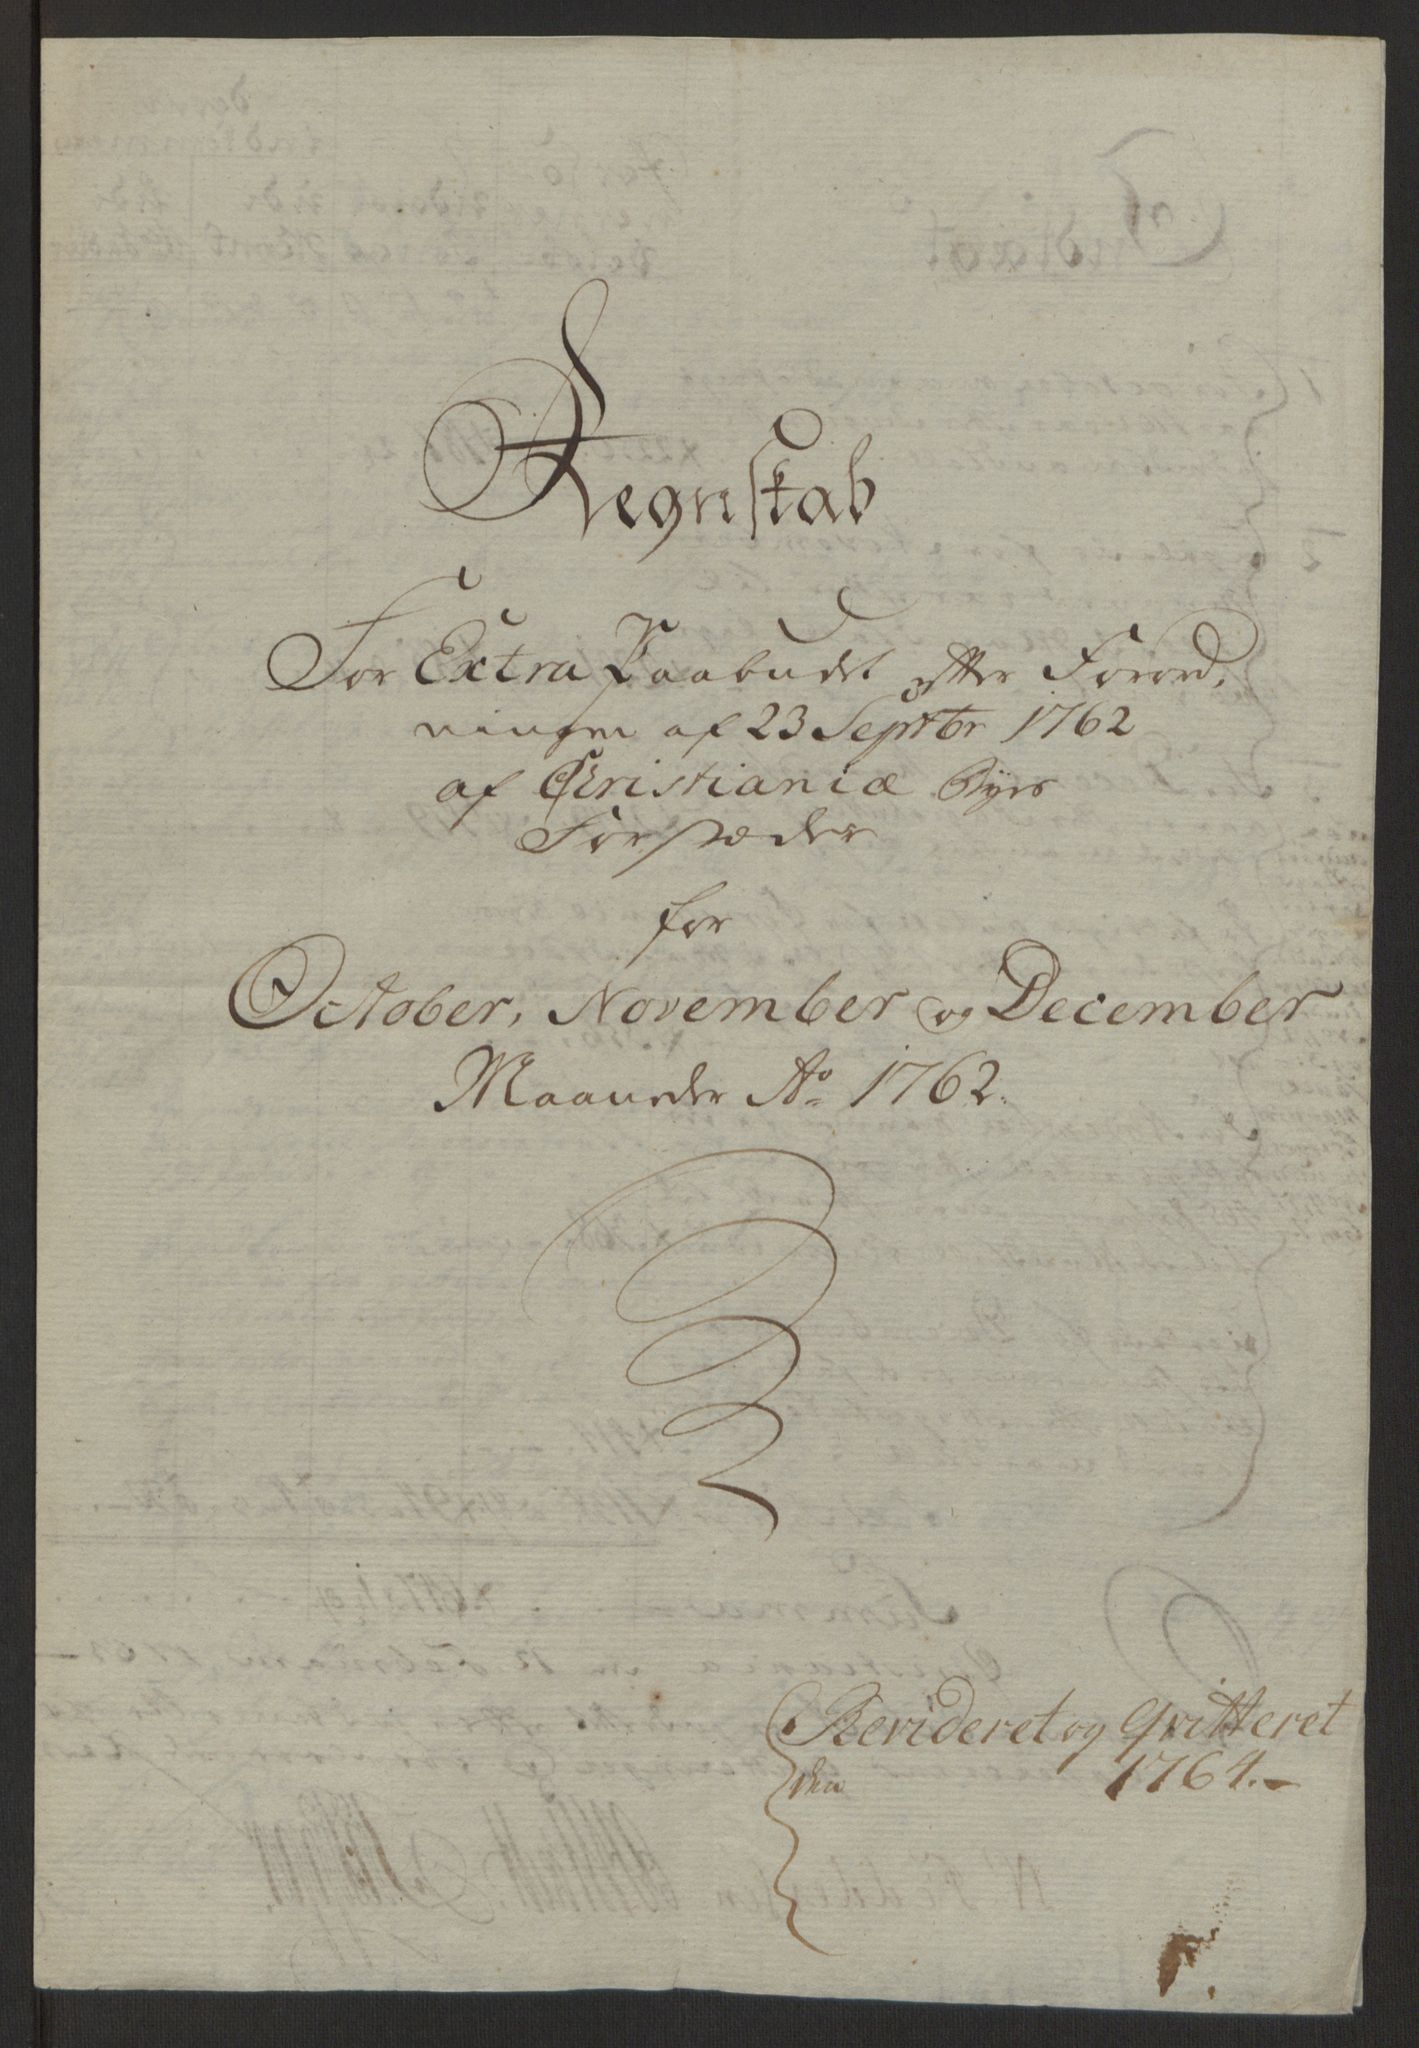 Regnskab
For Extra Paabudet efter Forord,
ningen af 23 Septbr 1762
af Christianiæ Byes
Forstæder
for
October, November og December
Maaneder Ao 1762.
Revideret og Qvitteret
den 1764.